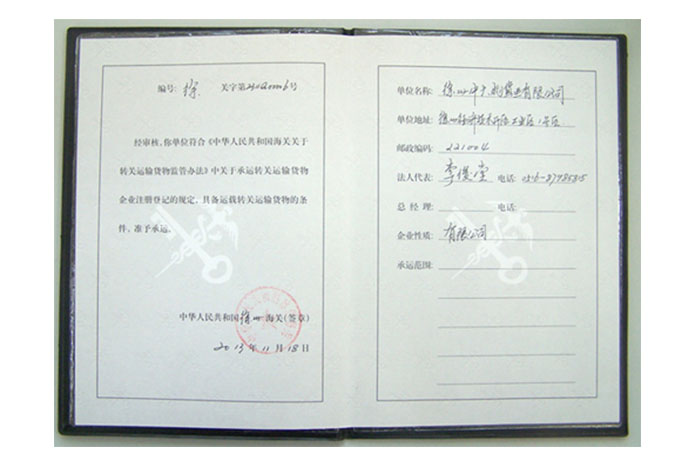 编号: 徐 关字第 号
经审核, 你单位符合《中华人民共和国海关关于
转关运输货物监管办法》中关于承运转关运输货物
企业注册登记的规定, 具备运载转关运输货物的条
件, 准予承运。
中华人民共和国徐州海关(签章)
2013年11月18日
单位名称: 徐州 有限公司
单位地址: 徐州经济技术开发 工业区
邮政编码: 221004
法人代表: 李 堂 电话:
总经理: 电话:
企业性质: 有限公司
承运范围: